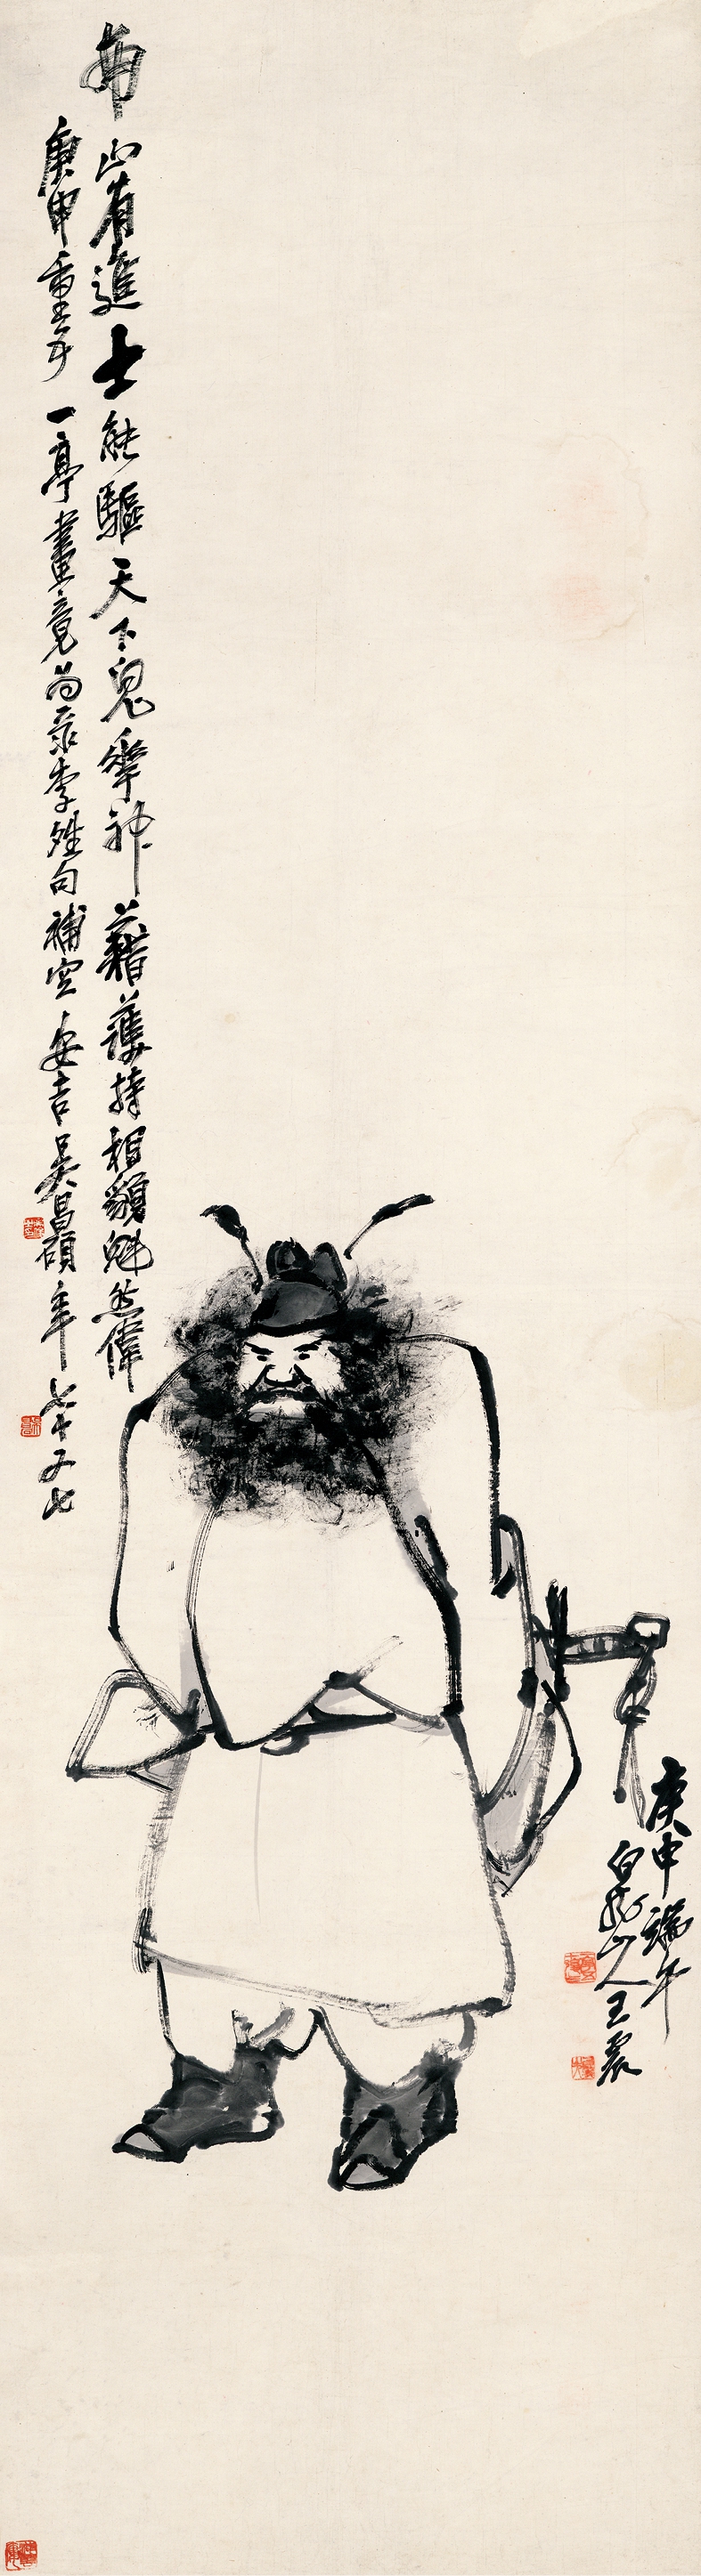 庚申端午
白龍山人王震
南山有進士能驅天下鬼神藉護持相貌魁然偉
庚申重午一亭畫竟為录李句補空安吉吳昌碩年七十又七